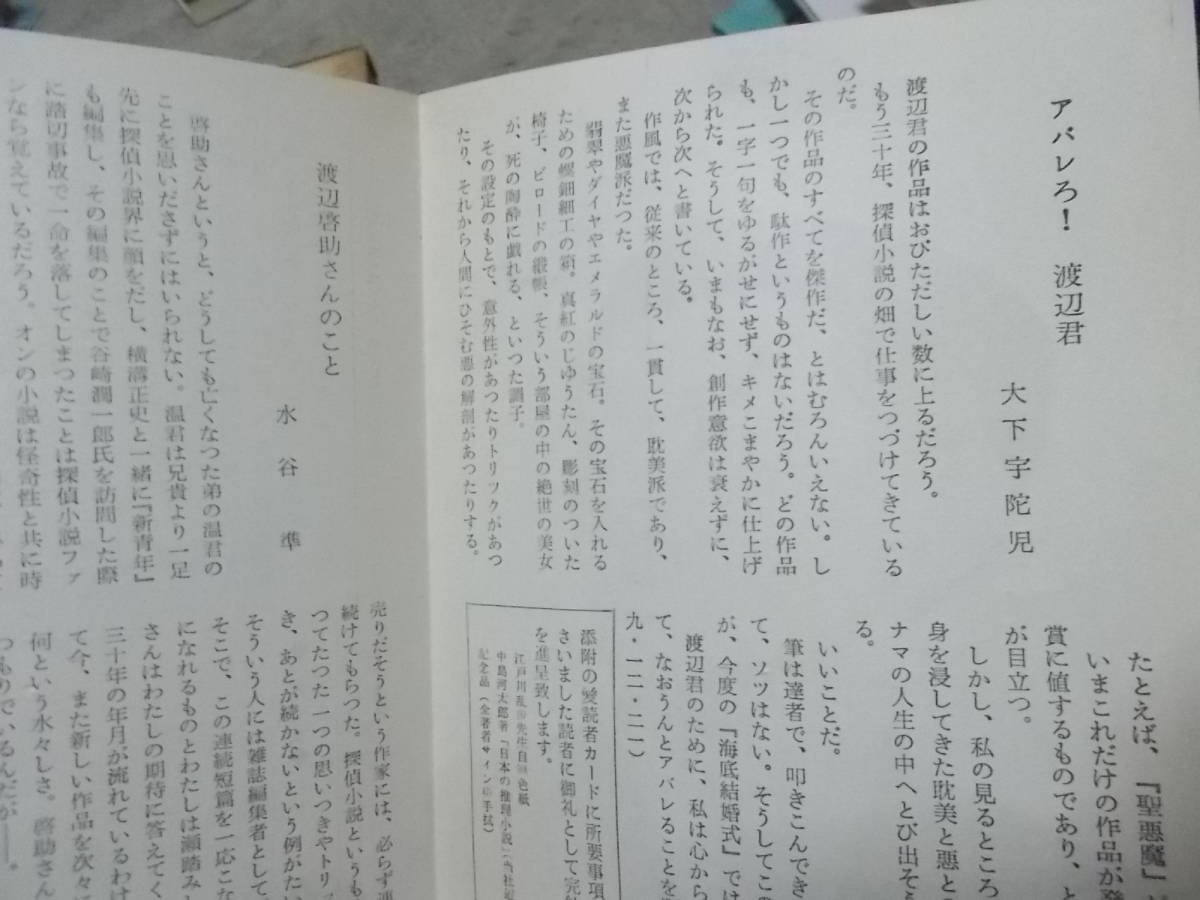 アバレろ! 渡辺君
大下宇陀児
渡辺君の作品はおびただしい数に上るだろう。
もう三十年、探偵小説の畑で仕事をつづけてきている
のだ。
その作品のすべてを傑作だ、とはむろんいえない。し
かし一つでも、駄作というものはないだろう。どの作品
も、一字一句をゆるがせにせず、キメこまやかに仕上げ
られた。そうして、いまもなお、創作意欲は衰えずに、
次から次へと書いている。
作風では、従来のところ、一貫して、耽美派であり、
また悪魔派だつた。
翡翠やダイヤやエメラルドの宝石。その宝石を入れる
ための螺鈿細工の箱。真紅のじゆうたん、彫刻のついた
椅子、ビロードの緞帳、そういう部屋の中の絶世の美女
が、死の陶酔に戯れる、といつた調子。
その設定のもとで、意外性があつたりトリツクがあつ
たり、それから人間にひそむ悪の解剖があつたりする。
たとえば、『聖悪魔』が
いまこれだけの作品が発
賞に値するものであり、と
が目立つ。
しかし、私の見るところ
身を浸してきた耽美と悪と
ナマの人生の中へとび出そう
る。
いいことだ。
筆は達者で、叩きこんでき
て、ソツはない。そうしてこの
が、今度の『海底結婚式』では
渡辺君のために、私は心から
て、なおうんとアバレることを
九・一二・二一)
添附の愛読者カードに所要事項
さいました読者に御礼として完
を進呈致します。
江戸川乱歩先生自 色紙
中島河太郎著「日本の推理小説」(当社
記念品(全著者サイン 手拭)
渡辺啓助さんのこと
水谷準
啓助さんというと、どうしても亡くなつた弟の温君の
ことを思いださずにはいられない。温君は兄貴より一足
先に探偵小説界に顔をだし、横溝正史と一緒に『新青年』
も編集し、その編集のことで谷崎潤一郎氏を訪問した際
に踏切事故で一命を落してしまつたことは探偵小説ファ
ンなら覚えているだろう。オンの小説は怪奇性と共に時
売りだそうという作家には、必らず連
続けてもらつた。探偵小説というも
つてたつた一つの思いつきやトリ
き、あとが続かないという例がた
そういう人には雑誌編集者として、
そこで、この連続短篇を一応こな
になれるものとわたしは瀬踏み
さんはわたしの期待に答えてく
三十年の年月が流れているわけ
て今、また新しい作品を次々に
何という水々しさ。啓助さん
つもので、いるんだが――。